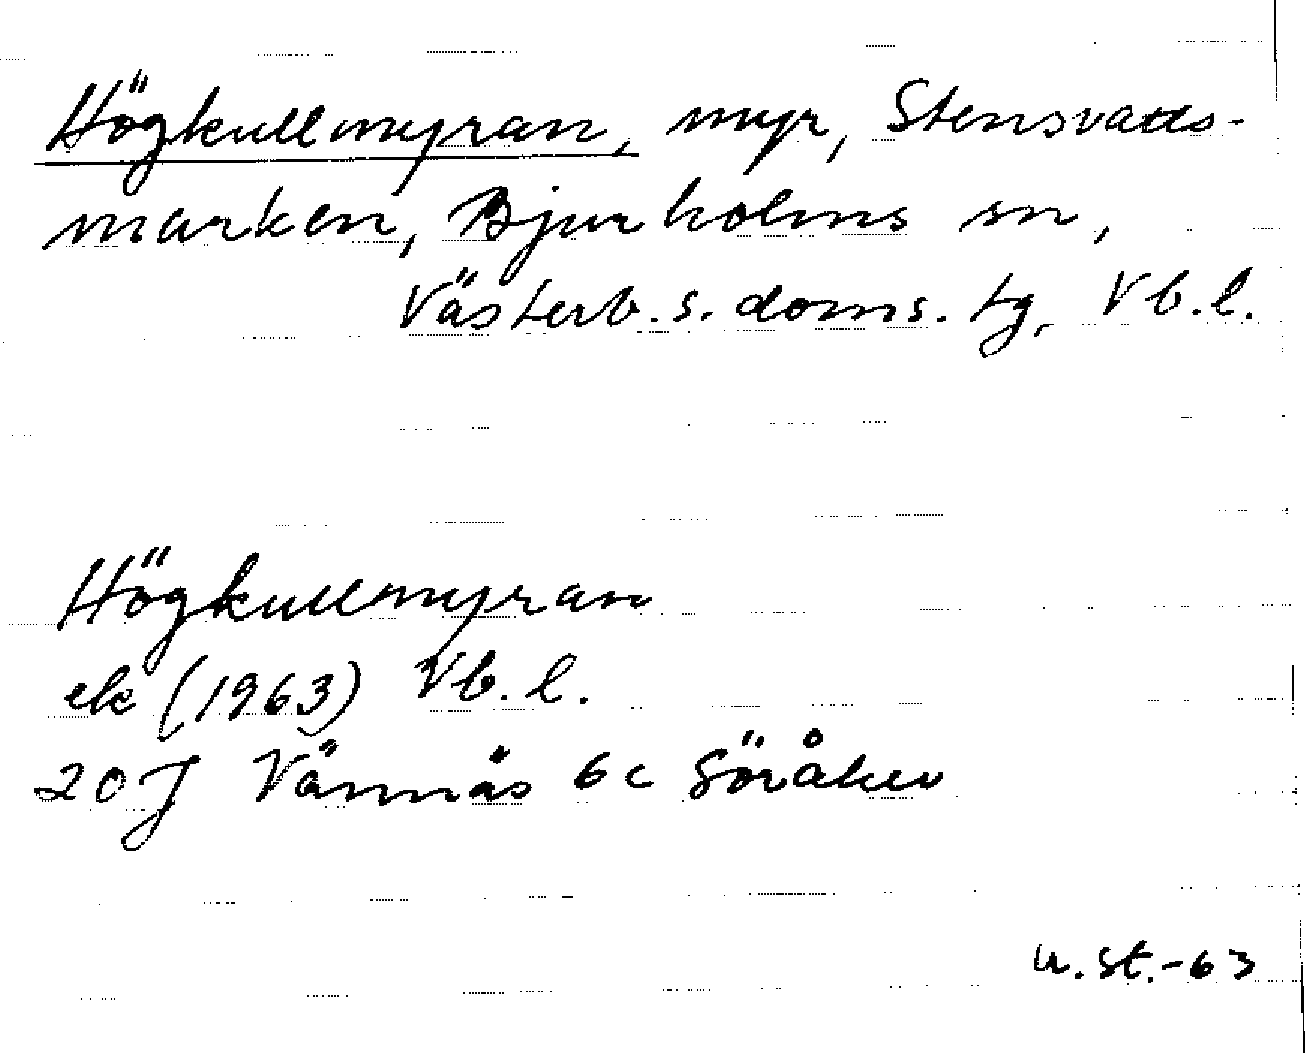 Högkullmyran, myr, Stensvatts-
marken, Bjurholms sn,
Västerb. s. doms. tg, Vb. l.
Högkullmyran
ek (1963) Vb. l.
20 J Vännäs 6c Söråker
u. st. -63